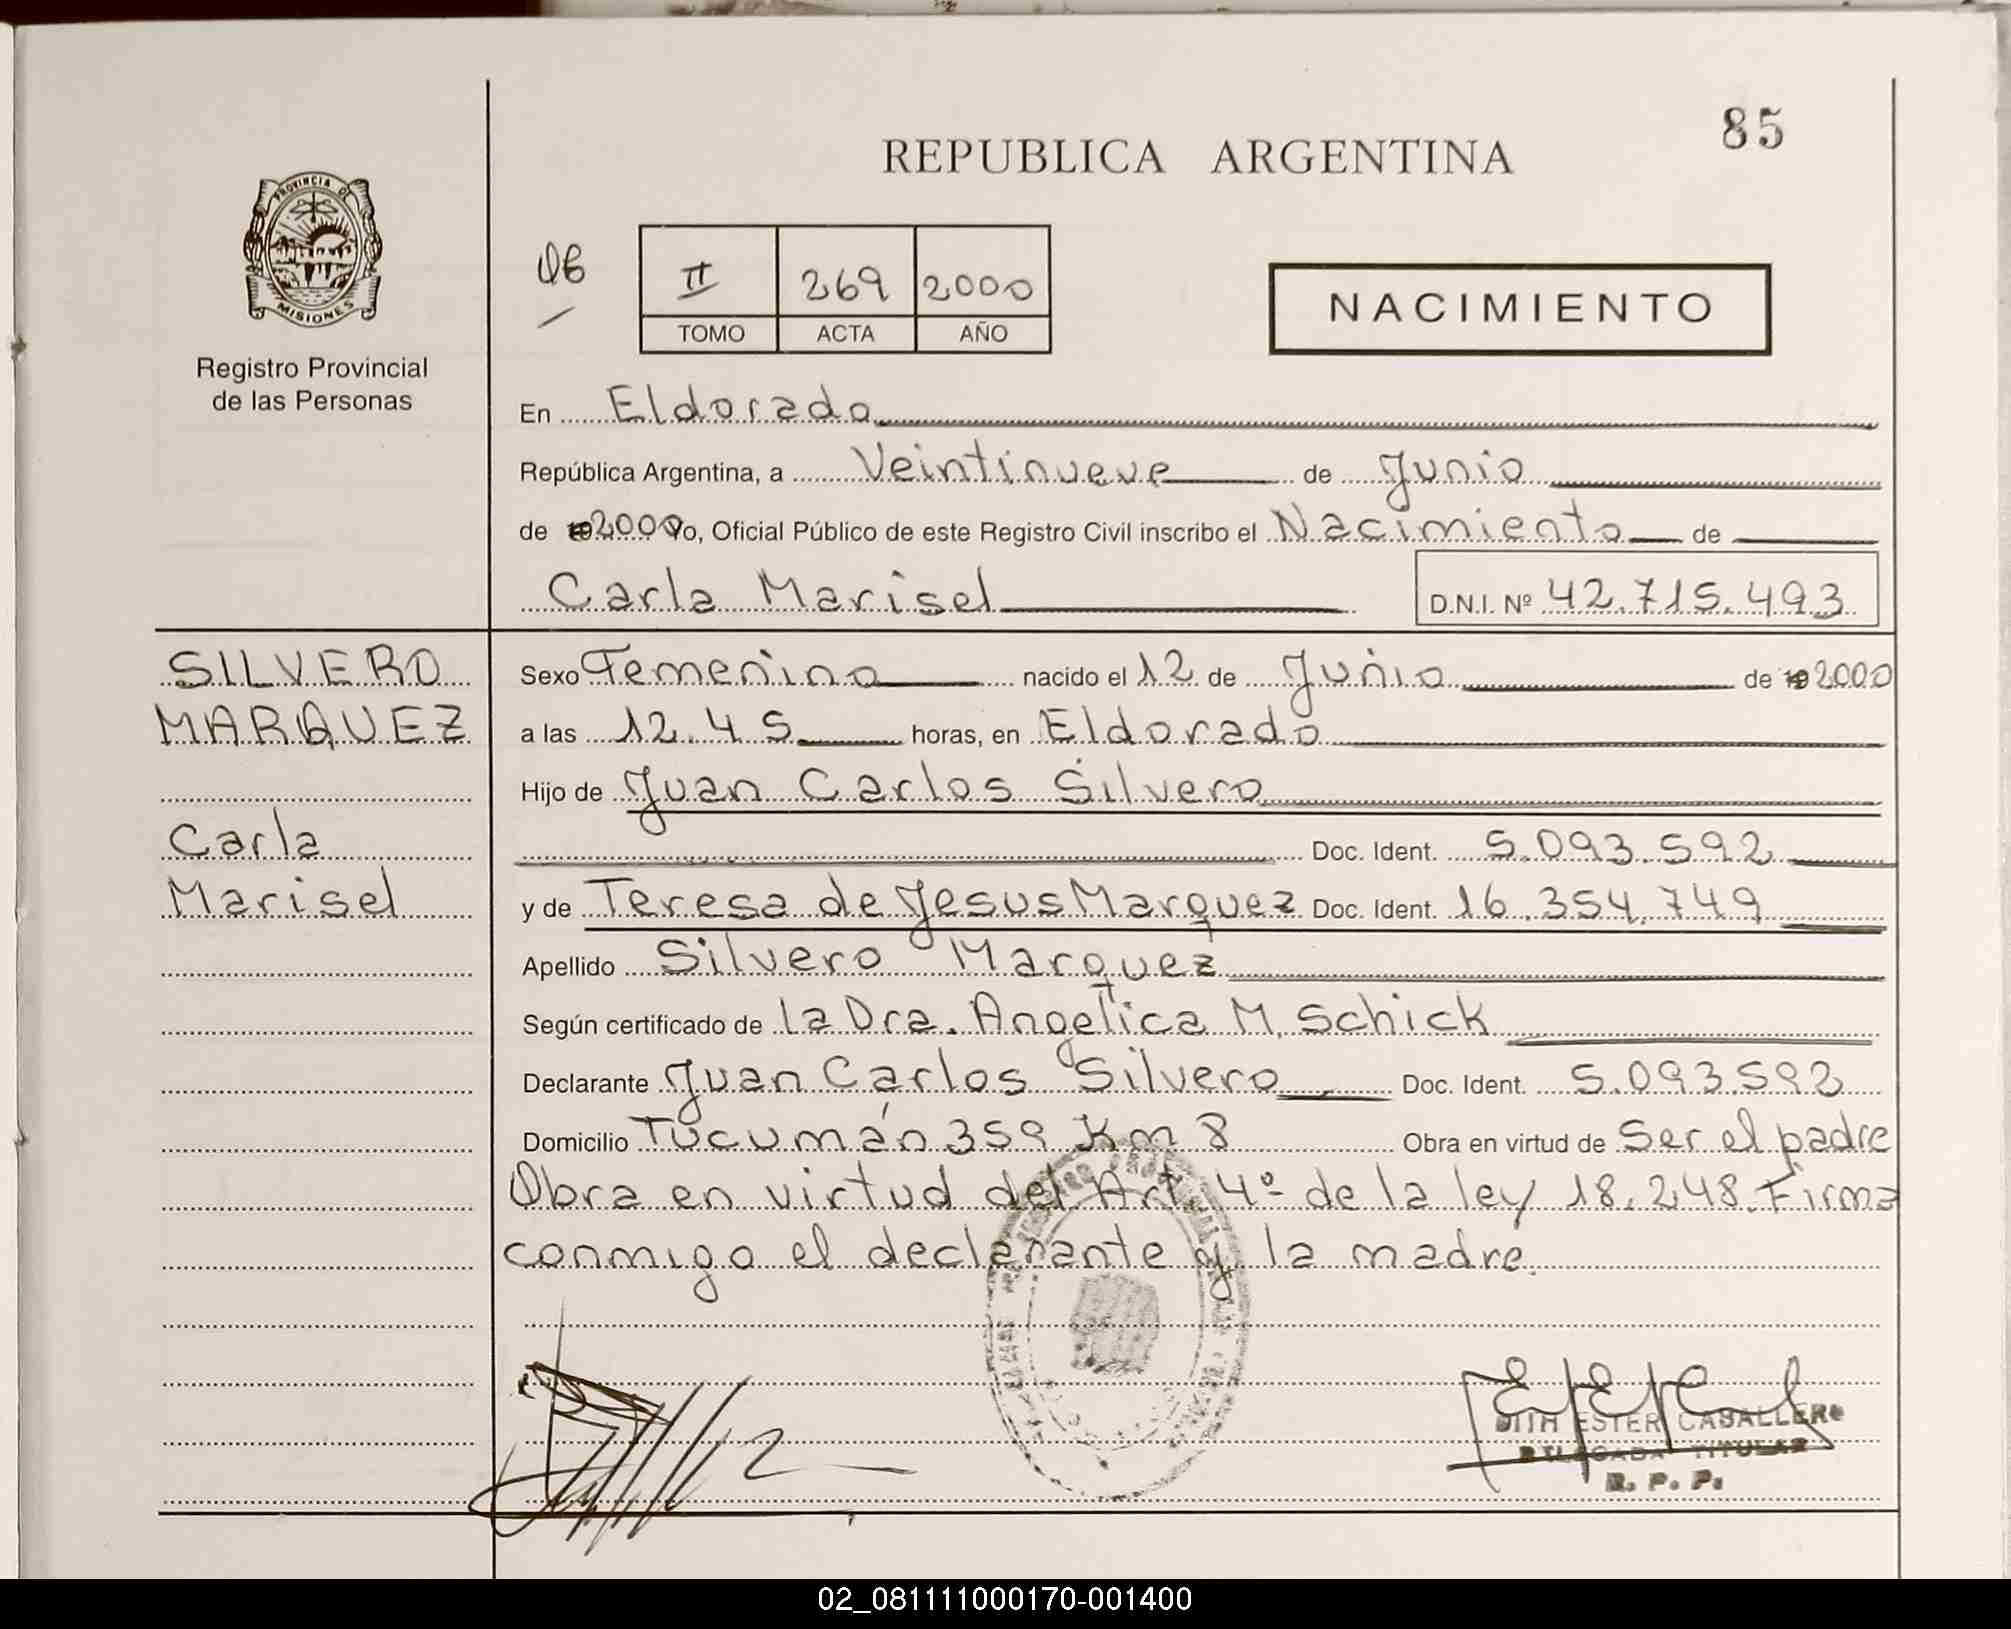 85
REPUBLICA ARGENTINA
PROVINCIA DE
MISIONES
Registro Provincial
de las Personas
II 269 2000
TOMO ACTA AÑO
NACIMIENTO
En Eldorado
República Argentina, a Veintinueve de Junio
de 19 2000 Yo, Oficial Público de este Registro Civil inscribo el Nacimiento de
Carla Marisel D.N.I. Nº 42.715.493
SILVERO
MARQUEZ
Carla
Marisel
Sexo Femenino nacido el 12 de Junio de 19 2000
a las 12.45 horas, en Eldorado
Hijo de Juan Carlos Silvero
Doc. Ident. 5.093.592
y de Teresa de Jesus Marquez Doc. Ident. 16.354.749
Apellido Silvero Marquez
Según certificado de la Dra. Angelica M. Schick
Declarante Juan Carlos Silvero Doc. Ident. 5.093.592
Domicilio Tucumán 359 Km 8 Obra en virtud de Ser el padre
Obra en virtud del Art. 4º de la ley 18.248. Firma
conmigo el declarante y la madre.
ESTER CABALLERO
DELEGADA TITULAR
R. P. P.
02_081111000170-001400